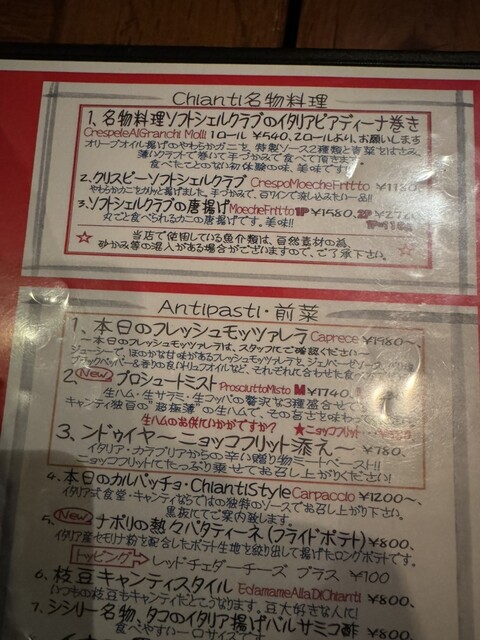 Chianti名物料理
1、名物料理ソフトシェルクラブのイタリアピアディーナ巻き
CrespeleAlGranchi Molli 1ロール ¥540、2ロールより、お願いします
オリーブオイル揚げのやわらかガニを、特製ソース2種類と香菜をはさみ、
薄いクラフトで巻いて手づかみで食べて頂きます
食べたことのない初体験の味、美味です
2、クリスピーソフトシェルクラブ CrespoMoecheFritto ¥1180
やわらかガニをカリッと揚げました、手づかみで、白ワインで楽しみたい一品!!
3、ソフトシェルクラブの唐揚げMoecheFritto 1P ¥1580、2P
丸ごと食べられるカニの唐揚げです。美味!!
☆ 当店で使用している魚介類は、自然素材の為、 ☆
砂かみ等の混入がある場合がございますので、ご了承下さい。
Antipasti・前菜
1、本日のフレッシュモッツァレラ Caprece ¥1980〜、
〜本日のフレッシュモッツァレラは、スタッフにご確認ください〜
ジューシーで、ほのかな甘味があるフレッシュモッツァレラを、ジェノベーゼソース
ブラックペッパー&香りの良いトリュフオイルなど、それぞれに合わせた
2、New プロシュートミスト ProsciuttoMisto M ¥1740
生ハム・生サラミ・生コッパの贅沢な3種盛合せ
キャンティ独自の“超極薄”の生ハムで、その旨さを味わっ
生ハムのお供にいかがですか? ★ニョッコフリット
3、ンドゥイヤ〜 ニョッコフリット添え〜 ¥780、
イタリア・カラブリアからの辛い贈り物ミートペースト!!
ニョッコフリットにたっぷり乗せてお召し上がりください!
4、本日のカルパッチョ・ChiantiStyle Carpaccio ¥1200〜、
イタリア式食堂・キャンティならではの独特のソースでお召し上がり下さい。
黒板にてご案内致します。
5、New ナポリの熱々パタティーネ(フライドポテト) ¥800、
イタリア産セモリナ粉を配合したポテト生地を絞り出して揚げたロングポテトです。
トッピング レッドチェダーチーズ プラス ¥100
6、枝豆キャンティスタイル EdamameAllaDiChianti ¥800、
いつもの枝豆もキャンティだとこうなります。豆大好きな人に!
7、シシリー名物、タコのイタリア揚げバルサミコ酢 ¥800、
食べやすい一口サイズです